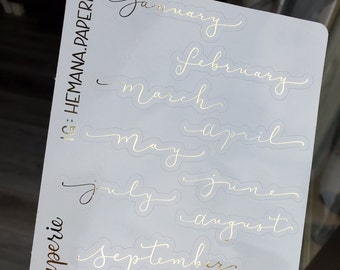 january
february
march
april
may
june
july
august
september
IG: HEMANA.PAPERI
aperie